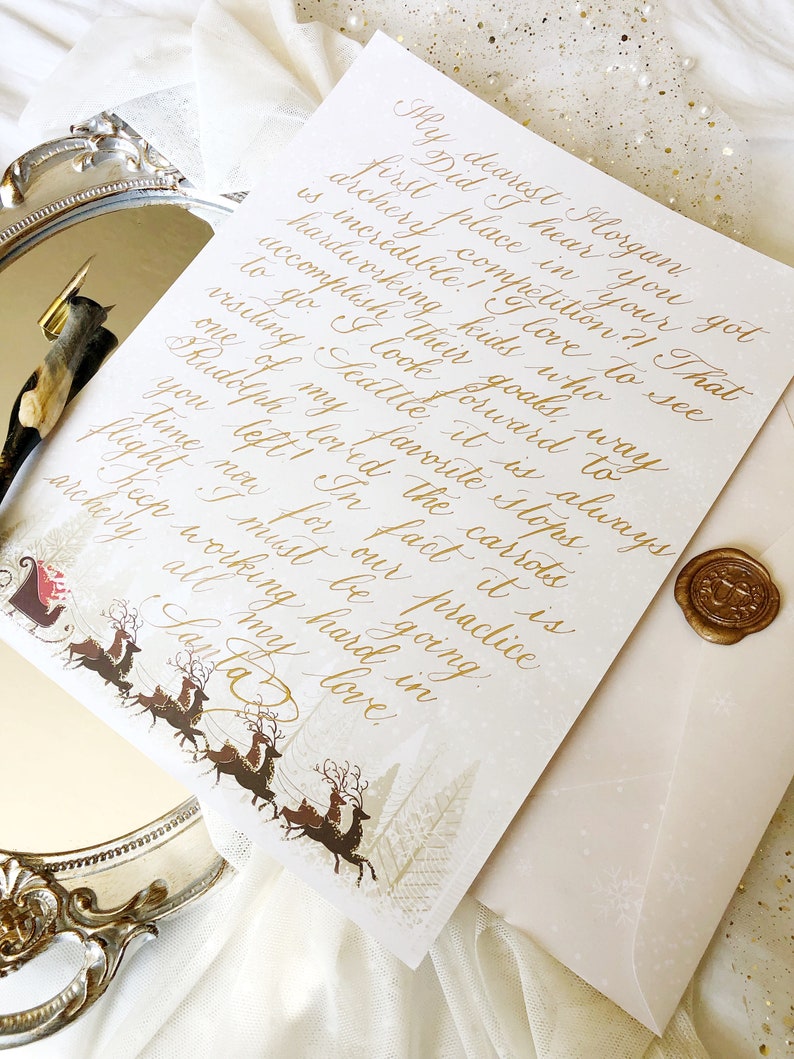 My dearest Morgan,
Did I hear you got
first place in your
archery competition?! That
is incredible! I love to see
hardworking kids who
accomplish their goals, way
to go. I look forward to
visiting Seattle it is always
one of my favorite stops.
Rudolph loved the carrots
you left! In fact it is
time now for our practice
flight. I must be going.
Keep working hard in
archery, all my love,
Santa